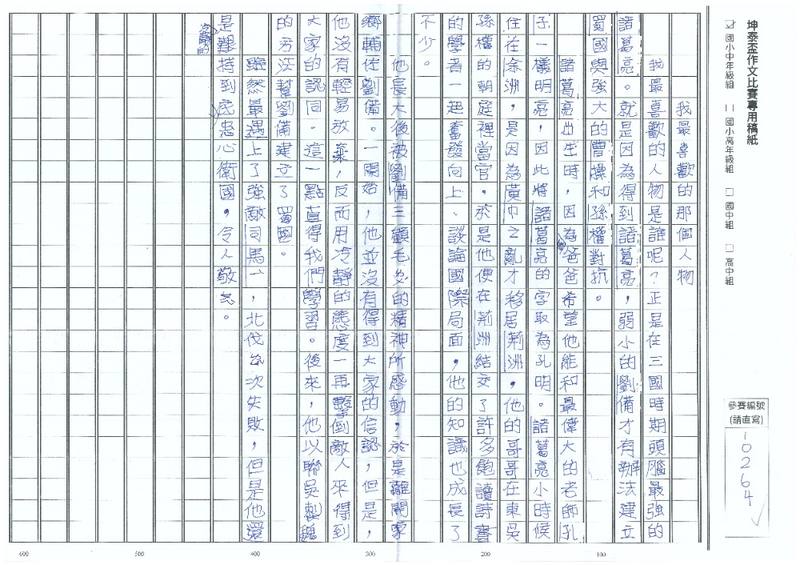 坤泰盃作文比賽專用稿紙
☑ 國小中年級組 □ 國小高年級組 □ 國中組 □ 高中組
參賽編號
(請直寫)
10264
我最喜歡的那個人物
我最喜歡的人物是誰呢?正是在三國時期頭腦最強的
諸葛亮。就是因為得到諸葛亮,弱小的劉備才有辦法建立
蜀國與強大的曹操和孫權對抗。
諸葛亮出生時,因為爸爸希望他能和最偉大的老師孔
子一樣明亮,因此將諸葛亮的字取為孔明。諸葛亮小時候
住在徐洲,是因為黃巾之亂才移居荊洲,他的哥哥在東吳
孫權的朝庭裡當官。於是他便在荊洲結交了許多飽讀詩書
的學者一起奮發向上、談論國際局面,他的知識也成長了
不少。
他長大後被劉備三顧毛炎的精神所感動,於是離開家
鄉輔佐劉備。一開始,他並沒有得到大家的信認,但是,
他沒有輕易放棄,反而用冷靜的態度一再擊倒敵人來得到
大家的認同。這一點直得我們學習。後來,他以聯吳制魏
的方法幫劉備建立了蜀國。
雖然最遇上了強敵司馬一,北伐多次失敗,但是他還
是艱持到底忠心衛國,令人敬念。
100
200
300
400
500
600